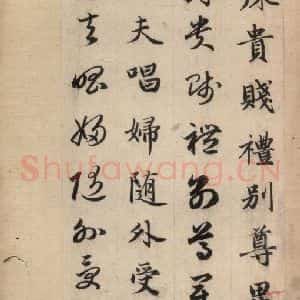 殊貴賤禮別尊卑
貴賤禮別尊卑
夫唱婦隨外受
夫唱婦隨外受
Shufawang.CN